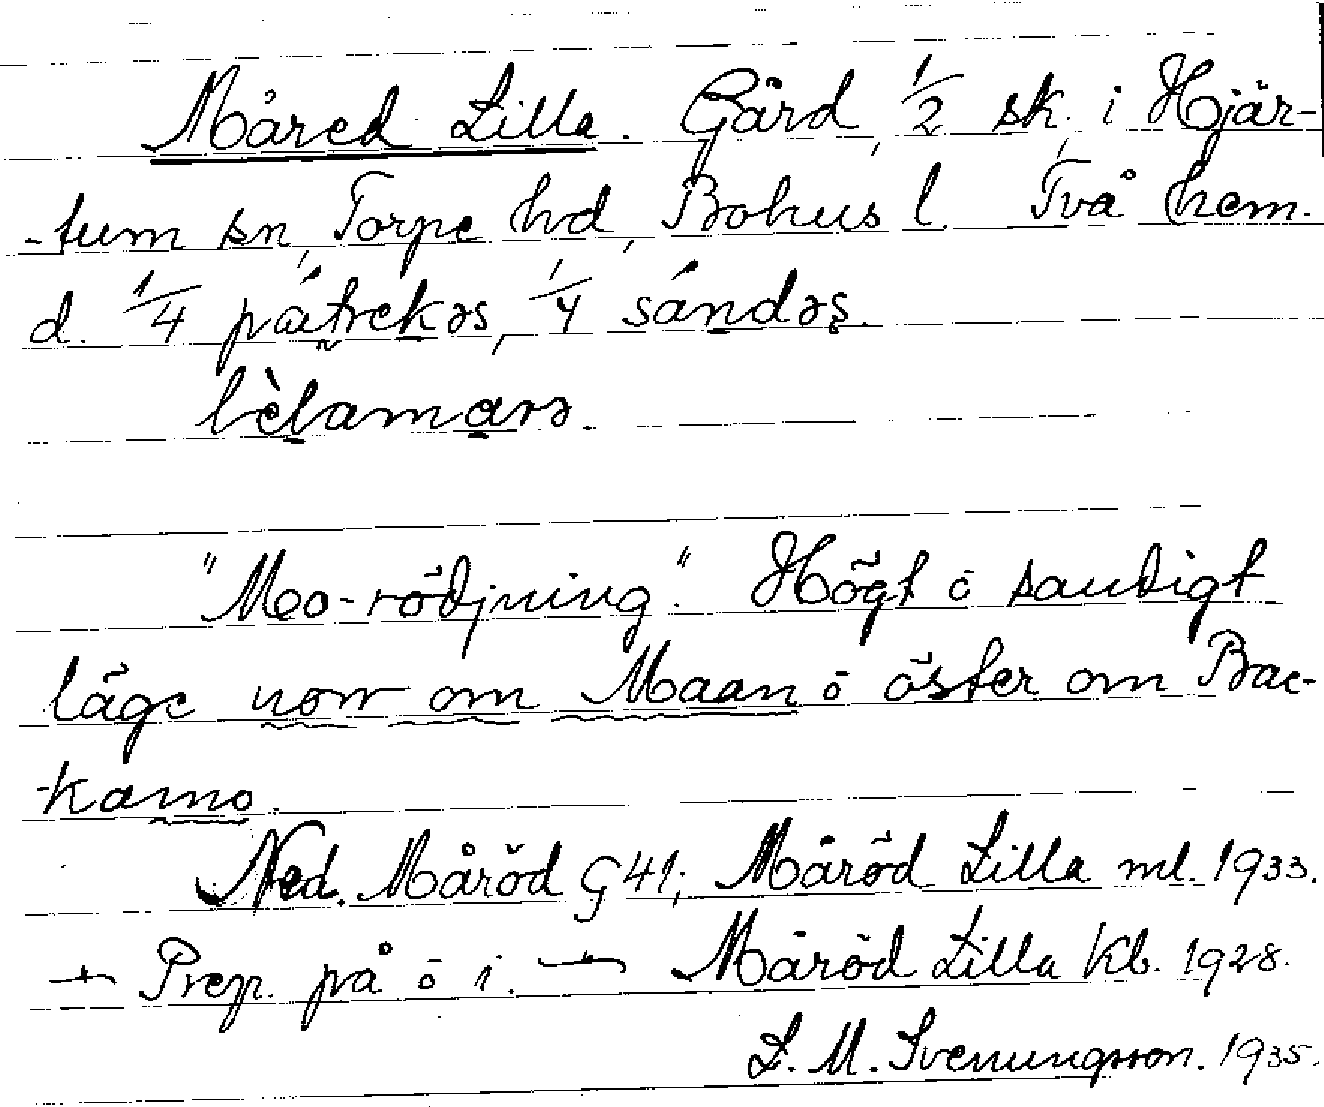 Måred Lilla. Gård, 1/2 sk. i Hjär-
-tum sn, Torpe hd, Bohus l. Två hem.
d. 1/4 pátrekəs, 1/4 sándəs.
lèlamarə.
"Mo-rödjning." Högt ö sandigt
läge norr om Maan ö öster om Bac-
kamo.
Ned. Måröd G 41; Måröd Lilla ml. 1933.
Prep. på ö i. — Måröd Lilla kb. 1928.
L. M. Svenungsson. 1935.